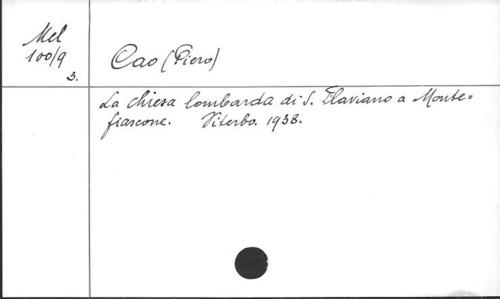 Mel
100/9
3.
Cao (Piero)
La chiesa lombarda di S. Flaviano a Monte=
fiascone. Viterbo. 1938.